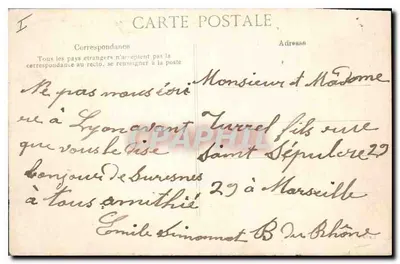 I
CARTE POSTALE
Correspondance
Tous les pays étrangers n'acceptent pas la
correspondance au recto, se renseigner à la poste
Ne pas nous écri
re à Lyon avant
que vous le dise
bonjour de Suresnes
à tous amithié
Emile Simonnot
Adresse
Monsieur et Madame
Turrel fils rue
Saint Sépulcre 29
29 à Marseille
B du Rhône
CPAPHIL